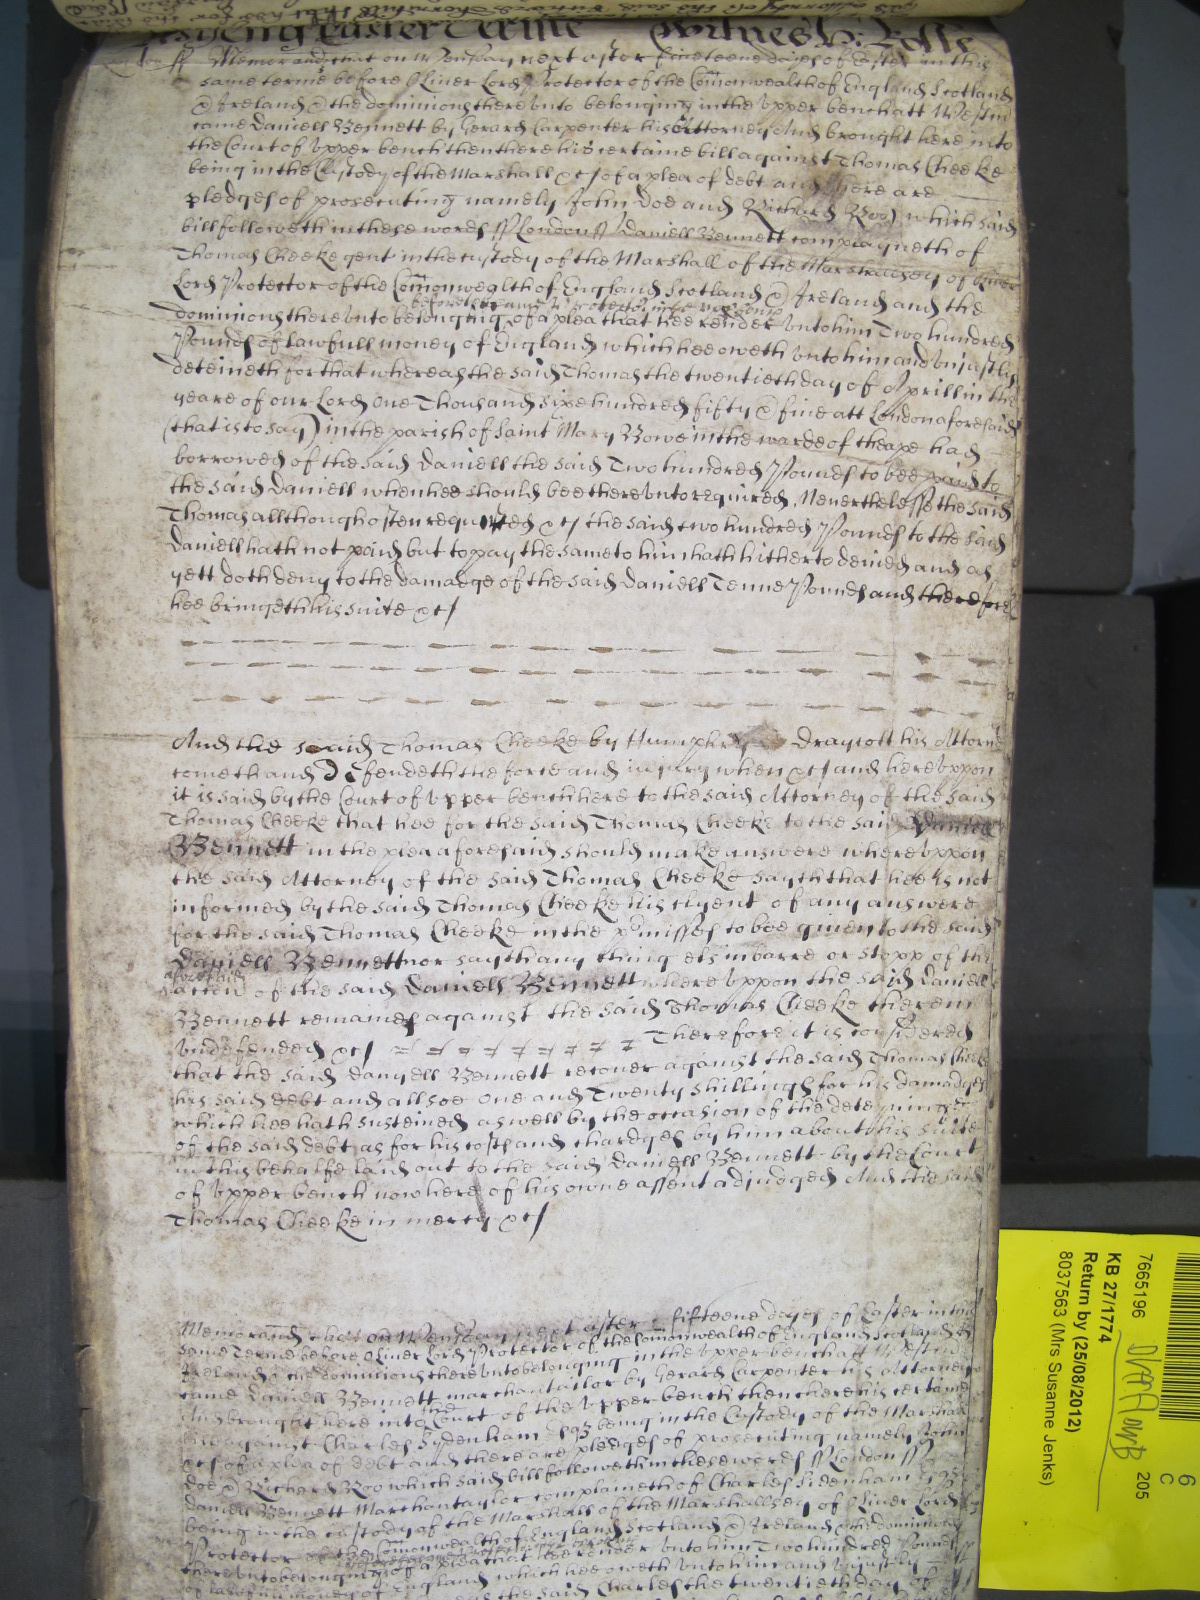 Easter Terme Witnes H: Rolle
London ss Memorand that on Wensday next after fineteene dayes of Easter in this
same terme before Oliver Lord Protector of the Comonwealth of England Scotland
& Ireland & the dominions thereunto belonging in the Upper bench att Westm
came Daniell Bennett by Gerard Carpenter his Attorney And brought here into
the Court of Upper bench then there his certaine bill against Thomas Cheeke
being in the Custody of the Marshall &c of a plea of debt and there are
pledges of prosecuting namely John Doe and Richard Roo which said
bill followeth in these words ss London ss Daniell Bennett complayneth of
Thomas Cheeke gent in the custody of the Marshall of the Marshallsey of Oliver
Lord Protector of the Comonwealth of England Scotland & Ireland and the
dominions thereunto belonging of a plea that hee render unto him Two hundred
Pounds of lawfull money of England which hee oweth unto him and uniustly
deteineth for that whereas the said Thomas the twentieth day of Aprill in the
yeare of our Lord one Thousand sixe hundred fifty & five att London aforesaid
(that is to say) in the parish of Saint Mary Bowe in the warde of cheape had
borrowed of the said Daniell the said Two hundred Pounds to bee paid to
the said Daniell when hee should bee thereunto required, Neverthelesse the said
Thomas allthough often requested &c the said two hundred Pounds to the said
Daniell hath not paid but to pay the same to him hath hitherto denied and as
yett doth deny to the damadge of the said Daniell Tenne Pounds and therefore
hee bringeth his suite &c
And the said Thomas Cheeke by Humphry Draycott his Attorney
cometh and Defendeth the force and iniury when &c and hereuppon
it is said by the Court of Upper bench here to the said Attorney of the said
Thomas Cheeke that hee for the said Thomas Cheeke to the said Daniell
Bennett in the plea aforesaid should make answere whereuppon
the said Attorney of the said Thomas Cheeke sayth that hee is not
informed by the said Thomas Cheeke his clyent of any answere
for the said Thomas Cheeke in the p'misses to bee given to the said
Daniell Bennett nor sayth any thing els in barre or stopp of the
aforesaid
action of the said Daniell Bennett whereuppon the said Daniell
Bennett remaines against the said Thomas Cheeke therein
undefended &c Therefore it is considered
that the said Danyell Bennett recover against the said Thomas Cheeke
his said debt and allsoe One and Twenty shillings for his damadges
which hee hath susteined aswell by the occasion of the deteyning
of the said debt as for his costs and chardges by him about his suite
in this behalfe laid out to the said Daniell Bennett by the Court
of Upper bench now here of his owne assent adiudged And the said
Thomas Cheeke in mercy &c
Memorand that on Wensday next after fifteene dayes of Easter in this
same Terme before Oliver Lord Protector of the Comonwealth of England Scotland &
Ireland & the dominions thereunto belonging in the Upper bench att Westm
came Daniell Bennett marchantailor by Gerard Carpenter his Attorney
And brought here into the Court of the Upper bench then there his certaine
bill against Charles Sydenham Esq being in the Custody of the Marshall
&c of a plea of debt and there are pledges of prosecuting namely John
Doe & Richard Roo which said bill followeth in these words ss London ss
Daniell Bennett Marchantaylor complaineth of Charles Sidenham Esq
being in the custody of the Marshall of the Marshallsey of Oliver Lord
Protector of the Comonwealth of England Scotland & Ireland & the dominions
thereunto belonging of a plea that hee render unto him Two hundred Pounds
of lawfull money of England which hee oweth unto him and uniustly
the said Charles the twentieth day of
7665196
KB 27/1774
Return by (25/08/2012)
8037563 (Mrs Susanne Jenks)
205
6
C